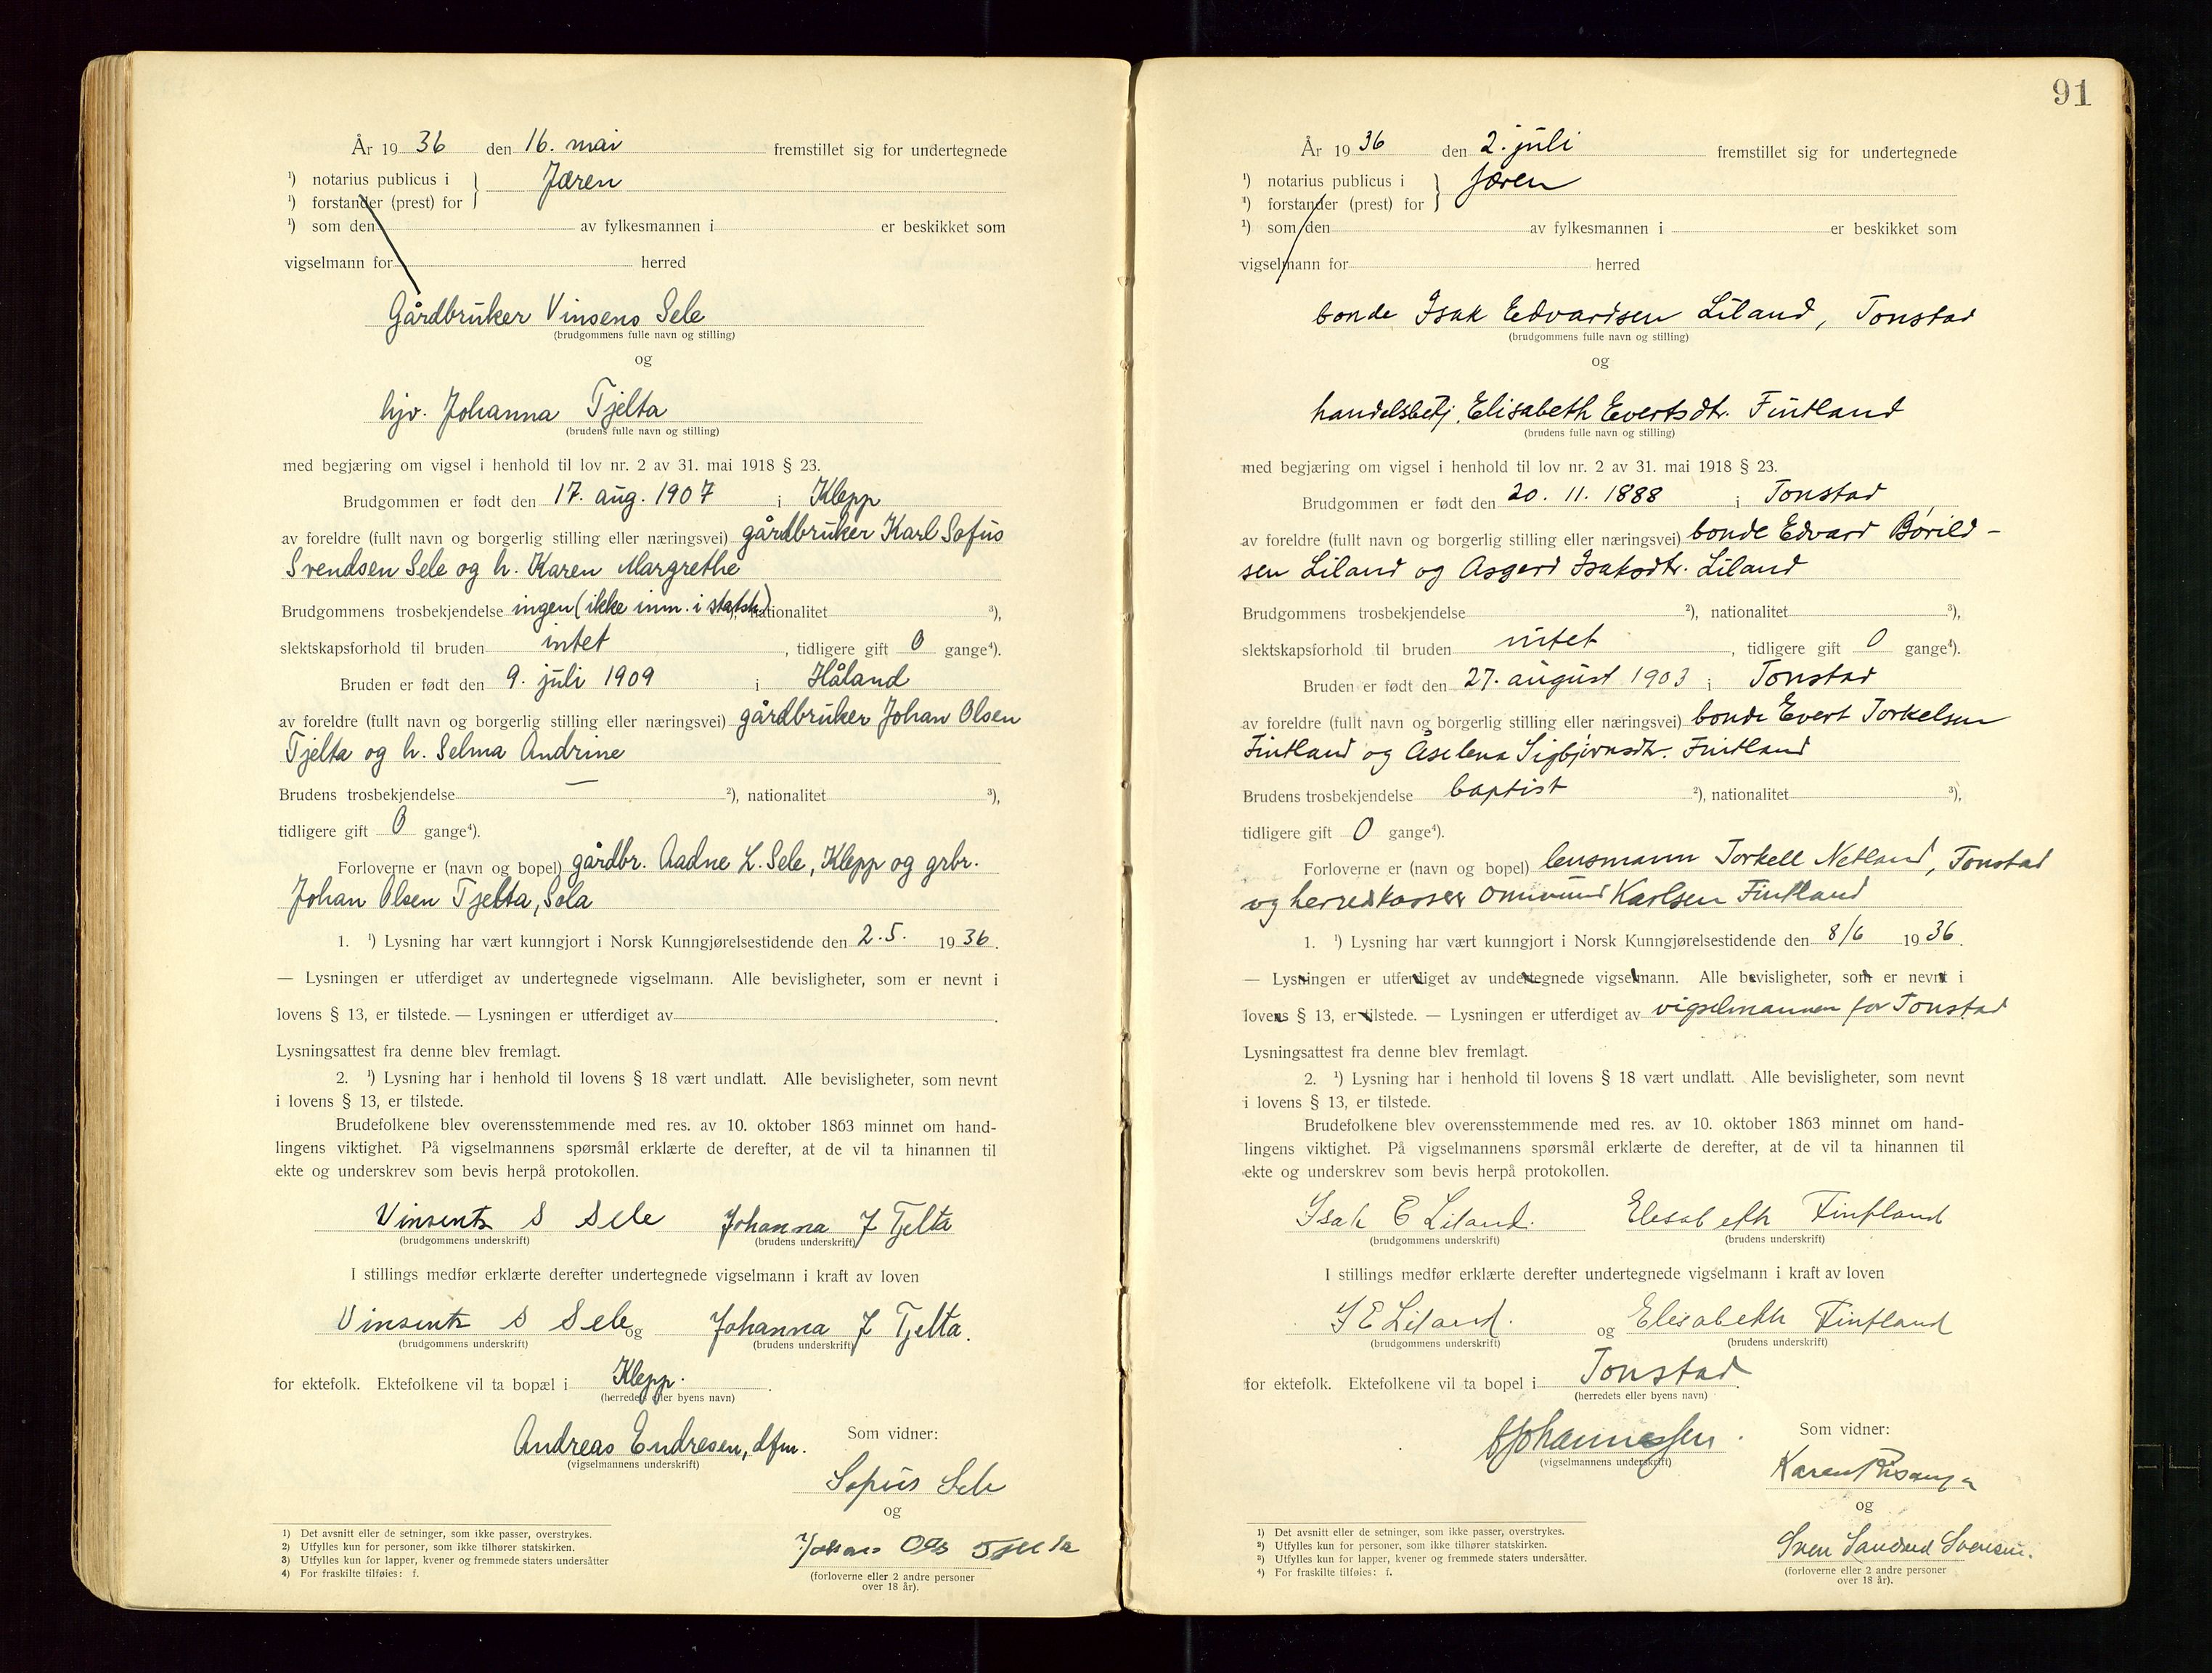 År 19 36 den 16. mai fremstillet sig for undertegnede
¹) notarius publicus i } Jæren
¹) forstander (prest) for
¹) som den av fylkesmannen i er beskikket som
vigselmann for herred
Gårdbruker Vinsens Sele
(brudgommens fulle navn og stilling)
og
hjv. Johanna Tjelta
(brudens fulle navn og stilling)
med begjæring om vigsel i henhold til lov nr. 2 av 31. mai 1918 § 23.
Brudgommen er født den 17. aug. 1907 i Klepp
av foreldre (fullt navn og borgerlig stilling eller næringsvei) gårdbruker Karl Sofus
Svendsen Sele og h. Karen Margrethe
Brudgommens trosbekjendelse ingen (ikke inm. i statsk) ²), nationalitet ³),
slektskapsforhold til bruden intet, tidligere gift 0 gange⁴).
Bruden er født den 9. juli 1909 i Håland
av foreldre (fullt navn og borgerlig stilling eller næringsvei) gårdbruker Johan Olsen
Tjelta og h. Selma Andrine
Brudens trosbekjendelse — ²), nationalitet ³),
tidligere gift 0 gange⁴).
Forloverne er (navn og bopel) gårdbr. Aadne L. Sele, Klepp og grbr.
Johan Olsen Tjelta, Sola
1. ¹) Lysning har vært kunngjort i Norsk Kunngjørelsestidende den 2.5. 19 36.
— Lysningen er utferdiget av undertegnede vigselmann. Alle bevisligheter, som er nevnt i
lovens § 13, er tilstede. — Lysningen er utferdiget av .
Lysningsattest fra denne blev fremlagt.
2. ¹) Lysning har i henhold til lovens § 18 vært undlatt. Alle bevisligheter, som nevnt
i lovens § 13, er tilstede.
Brudefolkene blev overensstemmende med res. av 10. oktober 1863 minnet om hand-
lingens viktighet. På vigselmannens spørsmål erklærte de derefter, at de vil ta hinannen til
ekte og underskrev som bevis herpå protokollen.
Vinsents S Sele Johanna J Tjelta
(brudgommens underskrift) (brudens underskrift)
I stillings medfør erklærte derefter undertegnede vigselmann i kraft av loven
Vinsents S Sele og Johanna J Tjelta.
(brudgommens underskrift) (brudens underskrift)
for ektefolk. Ektefolkene vil ta bopæl i Klepp.
(herredets eller byens navn)
Andreas Endresen, dfm. Som vidner:
(vigselmannens underskrift)
Sofus Sele
og
Johan Ols Tjelta
(forloverne eller 2 andre personer
over 18 år).
1) Det avsnitt eller de setninger, som ikke passer, overstrykes.
2) Utfylles kun for personer, som ikke tilhører statskirken.
3) Utfylles kun for lapper, kvener og fremmede staters undersåtter
4) For fraskilte tilføies: f.
91
År 19 36 den 2. juli fremstillet sig for undertegnede
¹) notarius publicus i } Jæren
¹) forstander (prest) for
¹) som den av fylkesmannen i er beskikket som
vigselmann for herred
bonde Isak Edvardsen Liland, Tonstad
(brudgommens fulle navn og stilling)
og
handelsbetj. Elisabeth Evertsdtr. Fintland
(brudens fulle navn og stilling)
med begjæring om vigsel i henhold til lov nr. 2 av 31. mai 1918 § 23.
Brudgommen er født den 20. 11. 1888 i Tonstad
av foreldre (fullt navn og borgerlig stilling eller næringsvei) bonde Edvard Børild-
sen Liland og Asgerd Isaksdtr. Liland
Brudgommens trosbekjendelse ²), nationalitet ³),
slektskapsforhold til bruden intet, tidligere gift 0 gange⁴).
Bruden er født den 27. august 1903 i Tonstad
av foreldre (fullt navn og borgerlig stilling eller næringsvei) bonde Evert Torkelsen
Fintland og Åselena Sigbjørnsdtr. Fintland
Brudens trosbekjendelse baptist ²), nationalitet ³),
tidligere gift 0 gange⁴).
Forloverne er (navn og bopel) lensmann Torkell Netland, Tonstad
og herredskasser Ommund Karlsen Fintland
1. ¹) Lysning har vært kunngjort i Norsk Kunngjørelsestidende den 8/6 19 36.
— Lysningen er utferdiget av undertegnede vigselmann. Alle bevisligheter, som er nevnt i
lovens § 13, er tilstede. — Lysningen er utferdiget av vigselmannen for Tonstad
Lysningsattest fra denne blev fremlagt.
2. ¹) Lysning har i henhold til lovens § 18 vært undlatt. Alle bevisligheter, som nevnt
i lovens § 13, er tilstede.
Brudefolkene blev overensstemmende med res. av 10. oktober 1863 minnet om hand-
lingens viktighet. På vigselmannens spørsmål erklærte de derefter, at de vil ta hinannen til
ekte og underskrev som bevis herpå protokollen.
Isak E Liland. Elisabeth Fintland
(brudgommens underskrift) (brudens underskrift)
I stillings medfør erklærte derefter undertegnede vigselmann i kraft av loven
I E Liland. og Elisabeth Fintland
(brudgommens underskrift) (brudens underskrift)
for ektefolk. Ektefolkene vil ta bopel i Tonstad.
(herredets eller byens navn)
Johannessen. Som vidner:
(vigselmannens underskrift)
Karen
og
Sven Svensen.
(forloverne eller 2 andre personer
over 18 år).
1) Det avsnitt eller de setninger, som ikke passer, overstrykes.
2) Utfylles kun for personer, som ikke tilhører statskirken.
3) Utfylles kun for lapper, kvener og fremmede staters undersåtter.
4) For fraskilte tilføies: f.